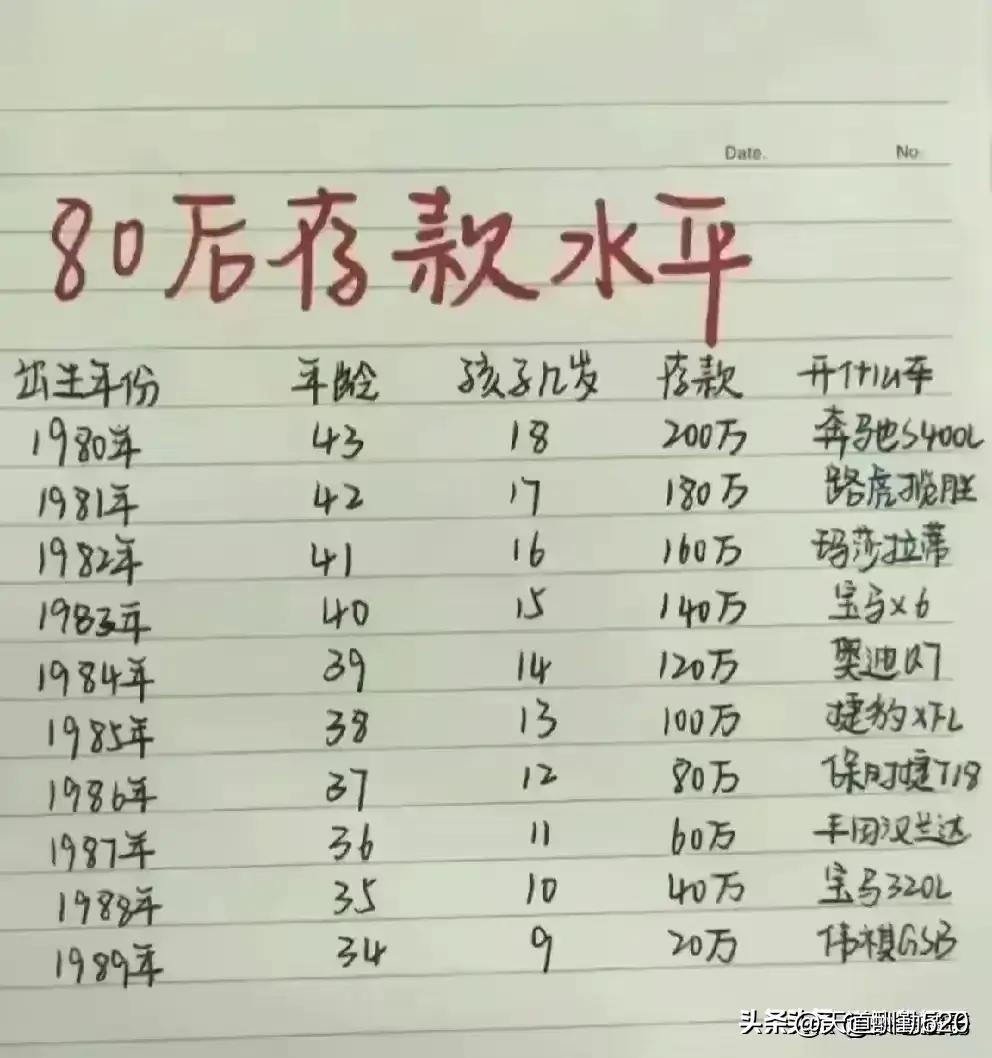 Date. No.
80后存款水平
出生年份 年龄 孩子几岁 存款 开什么车
1980年 43 18 200万 奔驰S400L
1981年 42 17 180万 路虎揽胜
1982年 41 16 160万 玛莎拉蒂
1983年 40 15 140万 宝马x6
1984年 39 14 120万 奥迪Q7
1985年 38 13 100万 捷豹XFL
1986年 37 12 80万 保时捷718
1987年 36 11 60万 丰田汉兰达
1988年 35 10 40万 宝马320L
1989年 34 9 20万 传祺GS8
头条